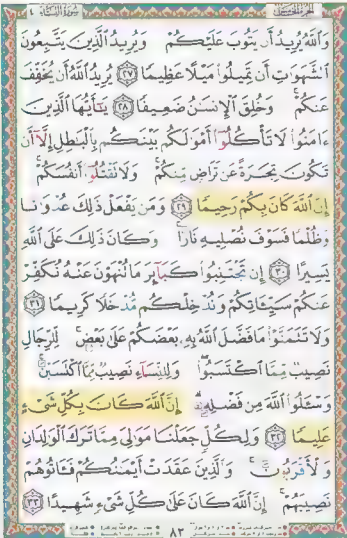 الجزء الخامس سُورَةُ النِّسَاءِ ٤
وَٱللَّهُ يُرِيدُ أَن يَتُوبَ عَلَيْكُمْ وَيُرِيدُ ٱلَّذِينَ يَتَّبِعُونَ
ٱلشَّهَوَٰتِ أَن تَمِيلُوا۟ مَيْلًا عَظِيمًا ٢٧ يُرِيدُ ٱللَّهُ أَن يُخَفِّفَ
عَنكُمْ ۚ وَخُلِقَ ٱلْإِنسَٰنُ ضَعِيفًا ٢٨ يَٰٓأَيُّهَا ٱلَّذِينَ
ءَامَنُوا۟ لَا تَأْكُلُوٓا۟ أَمْوَٰلَكُم بَيْنَكُم بِٱلْبَٰطِلِ إِلَّآ أَن
تَكُونَ تِجَٰرَةً عَن تَرَاضٍ مِّنكُمْ ۚ وَلَا تَقْتُلُوٓا۟ أَنفُسَكُمْ ۚ
إِنَّ ٱللَّهَ كَانَ بِكُمْ رَحِيمًا ٢٩ وَمَن يَفْعَلْ ذَٰلِكَ عُدْوَٰنًا
وَظُلْمًا فَسَوْفَ نُصْلِيهِ نَارًا ۚ وَكَانَ ذَٰلِكَ عَلَى ٱللَّهِ
يَسِيرًا ٣٠ إِن تَجْتَنِبُوا۟ كَبَآئِرَ مَا تُنْهَوْنَ عَنْهُ نُكَفِّرْ
عَنكُمْ سَيِّـَٔاتِكُمْ وَنُدْخِلْكُم مُّدْخَلًا كَرِيمًا ٣١
وَلَا تَتَمَنَّوْا۟ مَا فَضَّلَ ٱللَّهُ بِهِۦ بَعْضَكُمْ عَلَىٰ بَعْضٍ ۚ لِّلرِّجَالِ
نَصِيبٌ مِّمَّا ٱكْتَسَبُوا۟ ۖ وَلِلنِّسَآءِ نَصِيبٌ مِّمَّا ٱكْتَسَبْنَ ۚ
وَسْـَٔلُوا۟ ٱللَّهَ مِن فَضْلِهِۦٓ ۗ إِنَّ ٱللَّهَ كَانَ بِكُلِّ شَىْءٍ
عَلِيمًا ٣٢ وَلِكُلٍّ جَعَلْنَا مَوَٰلِىَ مِمَّا تَرَكَ ٱلْوَٰلِدَانِ
وَٱلْأَقْرَبُونَ ۚ وَٱلَّذِينَ عَقَدَتْ أَيْمَٰنُكُمْ فَـَٔاتُوهُمْ
نَصِيبَهُمْ ۚ إِنَّ ٱللَّهَ كَانَ عَلَىٰ كُلِّ شَىْءٍ شَهِيدًا ٣٣
٨٣